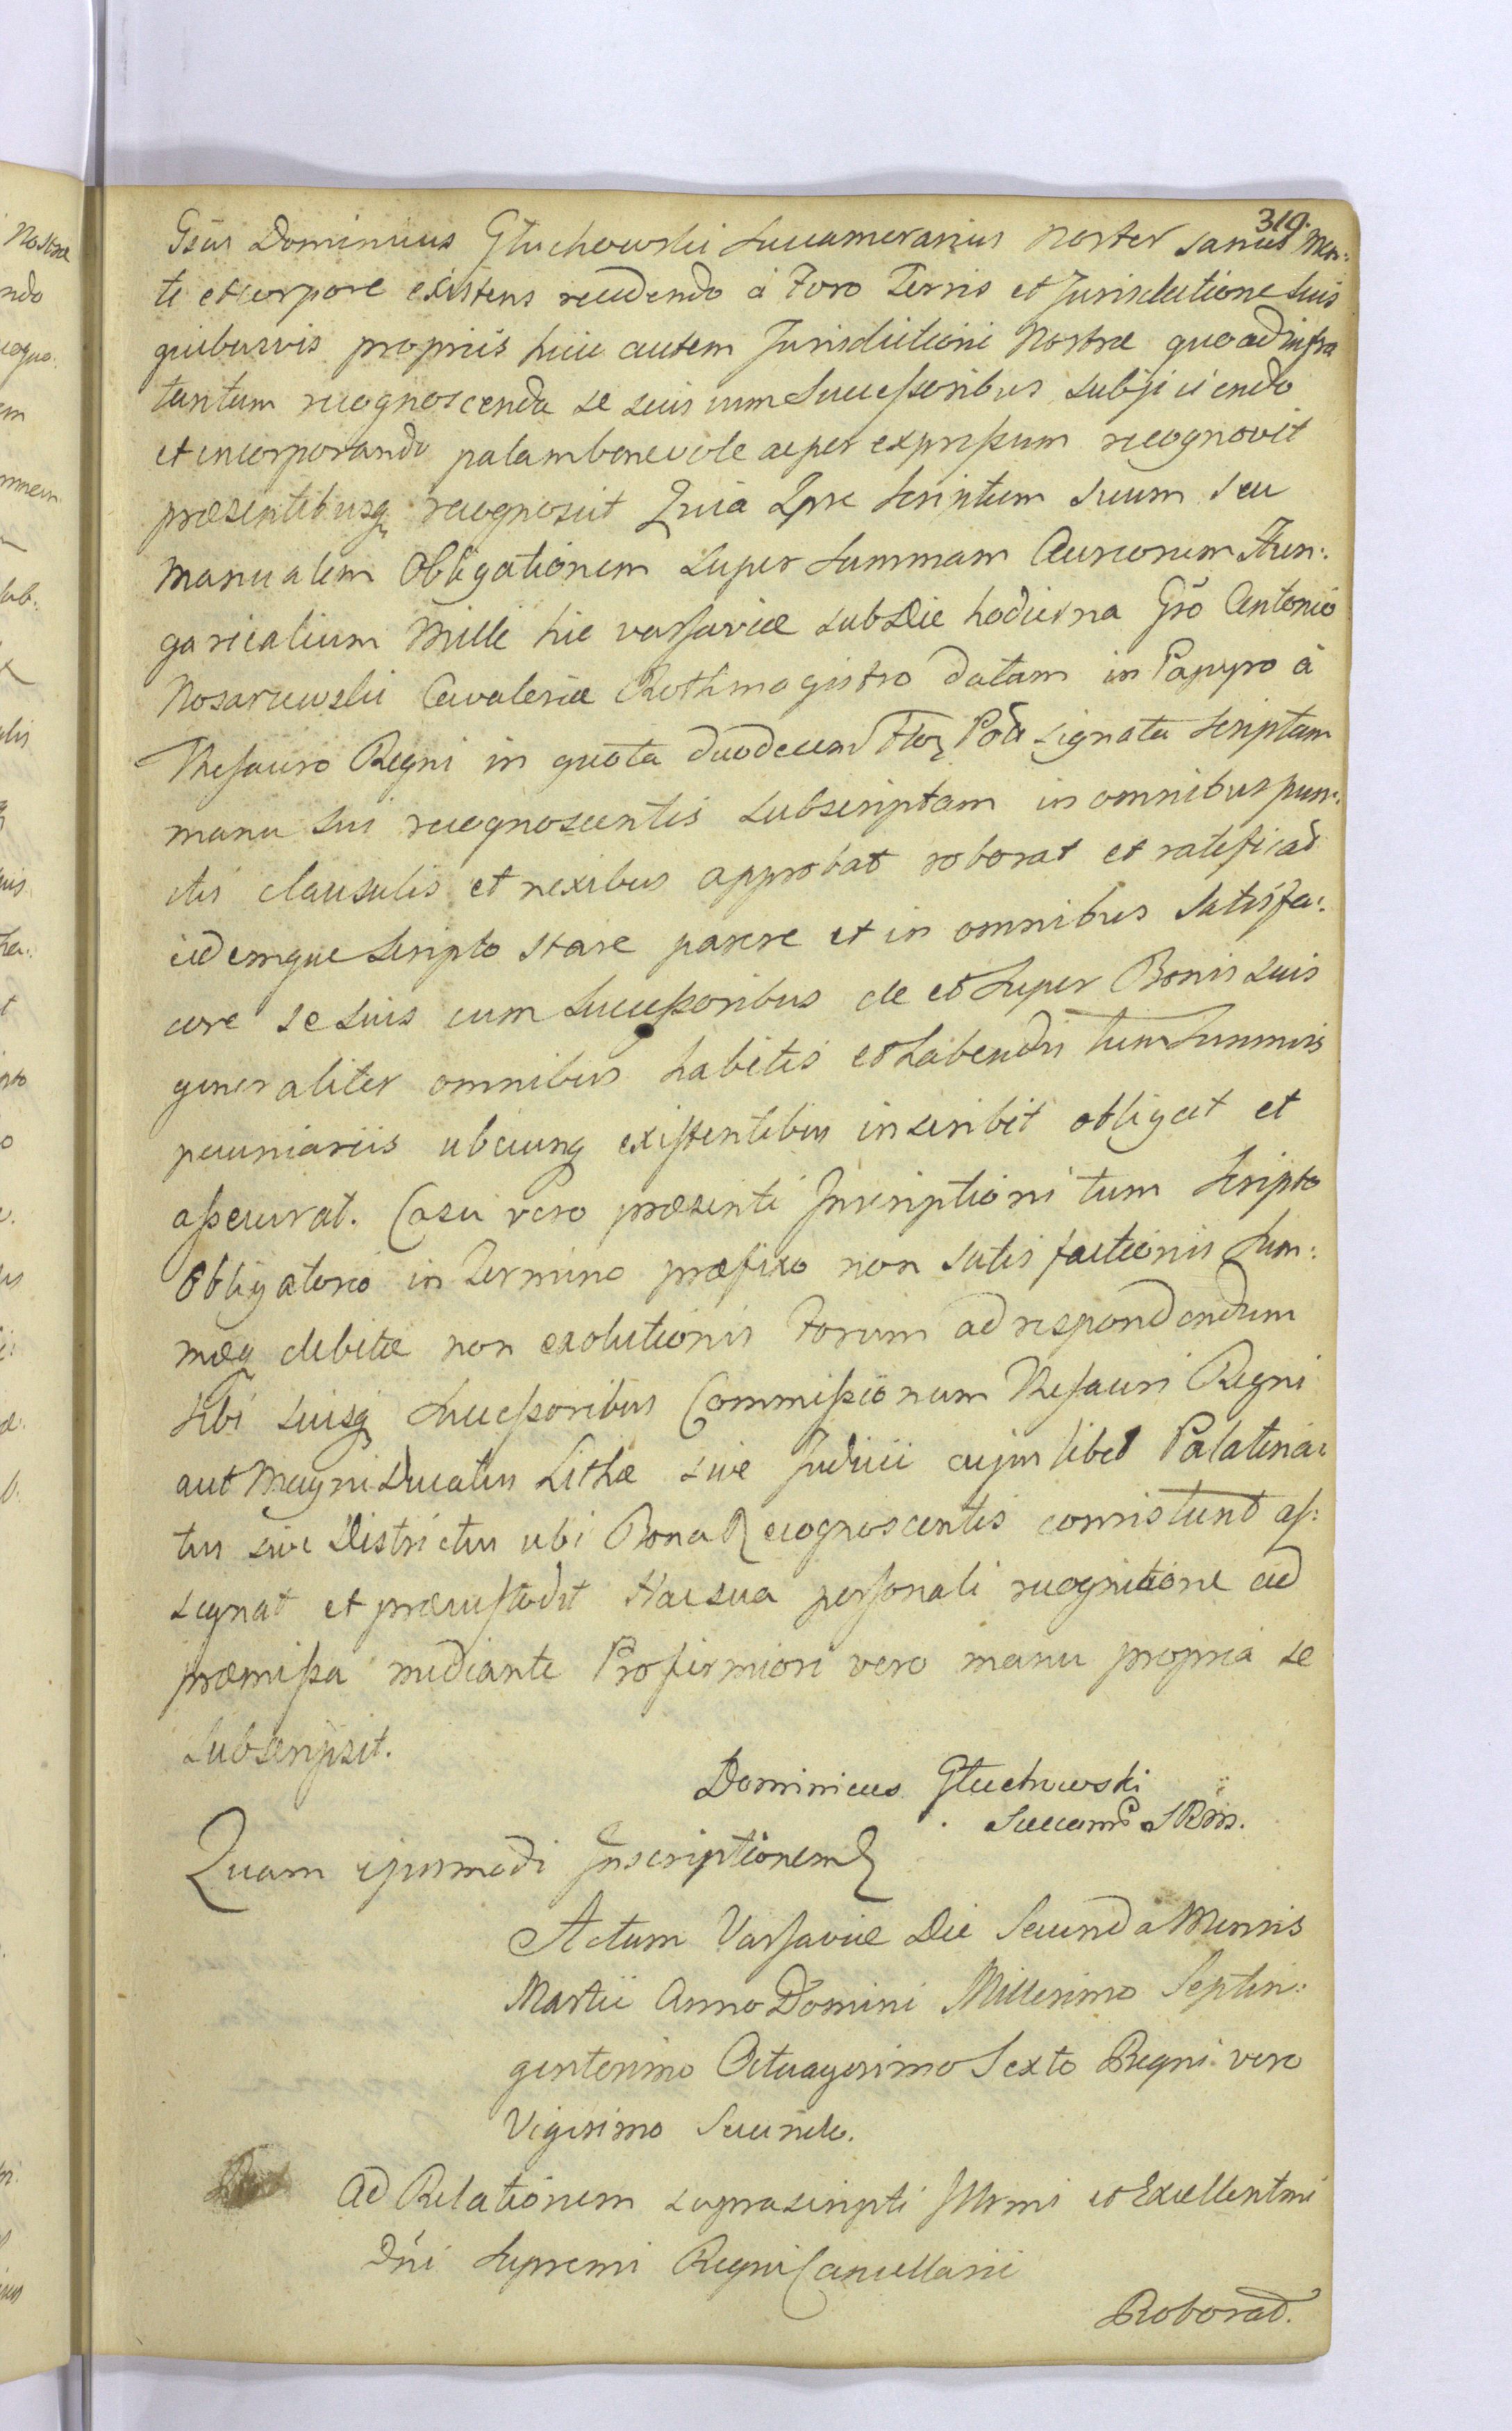 319.
Gsus Dominicus Głuchowski Succamerarius Noster sanus Men:
te et corpore existens recedendo á Foro Terris et Jurisdictione suis
quibusvis propriis huic autem Jurisdictioni Nostræ quo ad infra
tantum recognoscenda se suis cum Successoribus subjiciendo
et incorporando palam benevole ac per expressum recognovit
præsentibusq recognoscit Quia Ipse Scriptum suum seu
Manualem Obligationem super Summam Aureorum Hun:
garicalium Mille hic Varsaviæ sub Die hodierna Gso Antonio
Nosarzewski Cavaleriæ Rothmagistro datam in Papyro á
Thesauro Regni in quota duodecem Flor Pol signata Scriptam
manu sui recognoscentis subscriptam in omnibus punc:
ctis clausulis et nexibus approbat roborat et ratificat
eidemque Scripto stare parere et in omnibus Satisfa:
cere se suis cum Successoribus de et super Bonis suis
generaliter omnibus habitis et habendis tum Summis
pecuniariis ubicunq existentibus inscribit obligat et
assecurat. Casu vero præsenti Inscriptioni tum Scripto
Obligatorio in Termino præfixo non satisfactionis Sum:
mæq debitæ non exolutionis Forum ad respondendum
sibi suisq Successoribus Commissionum Thesauri Regni
aut Magni Ducatus Lithæ sive Judicii cujuslibet Palatina:
tus sive Districtus ubi Bona Recognoscentis consistunt as:
signat et præcustodit Hac sua personali recognitione ad
præmissa mediante Pro firmiori vero manu propria se
subscripsit.
Dominicus Głuchowski
Succam S R M.
Quam ejusmodi Inscriptionem
Actum Varsaviæ Die Secunda Mensis
Martii Anno Domini Millesimo Septin:
gentesimo Octuagesimo Sexto Regni vero
Vigesimo Secundo.
Ad Relationem suprascripti Illrmi et Excellentmi
Dni Supremi Regni Cancellarii
Roborat.